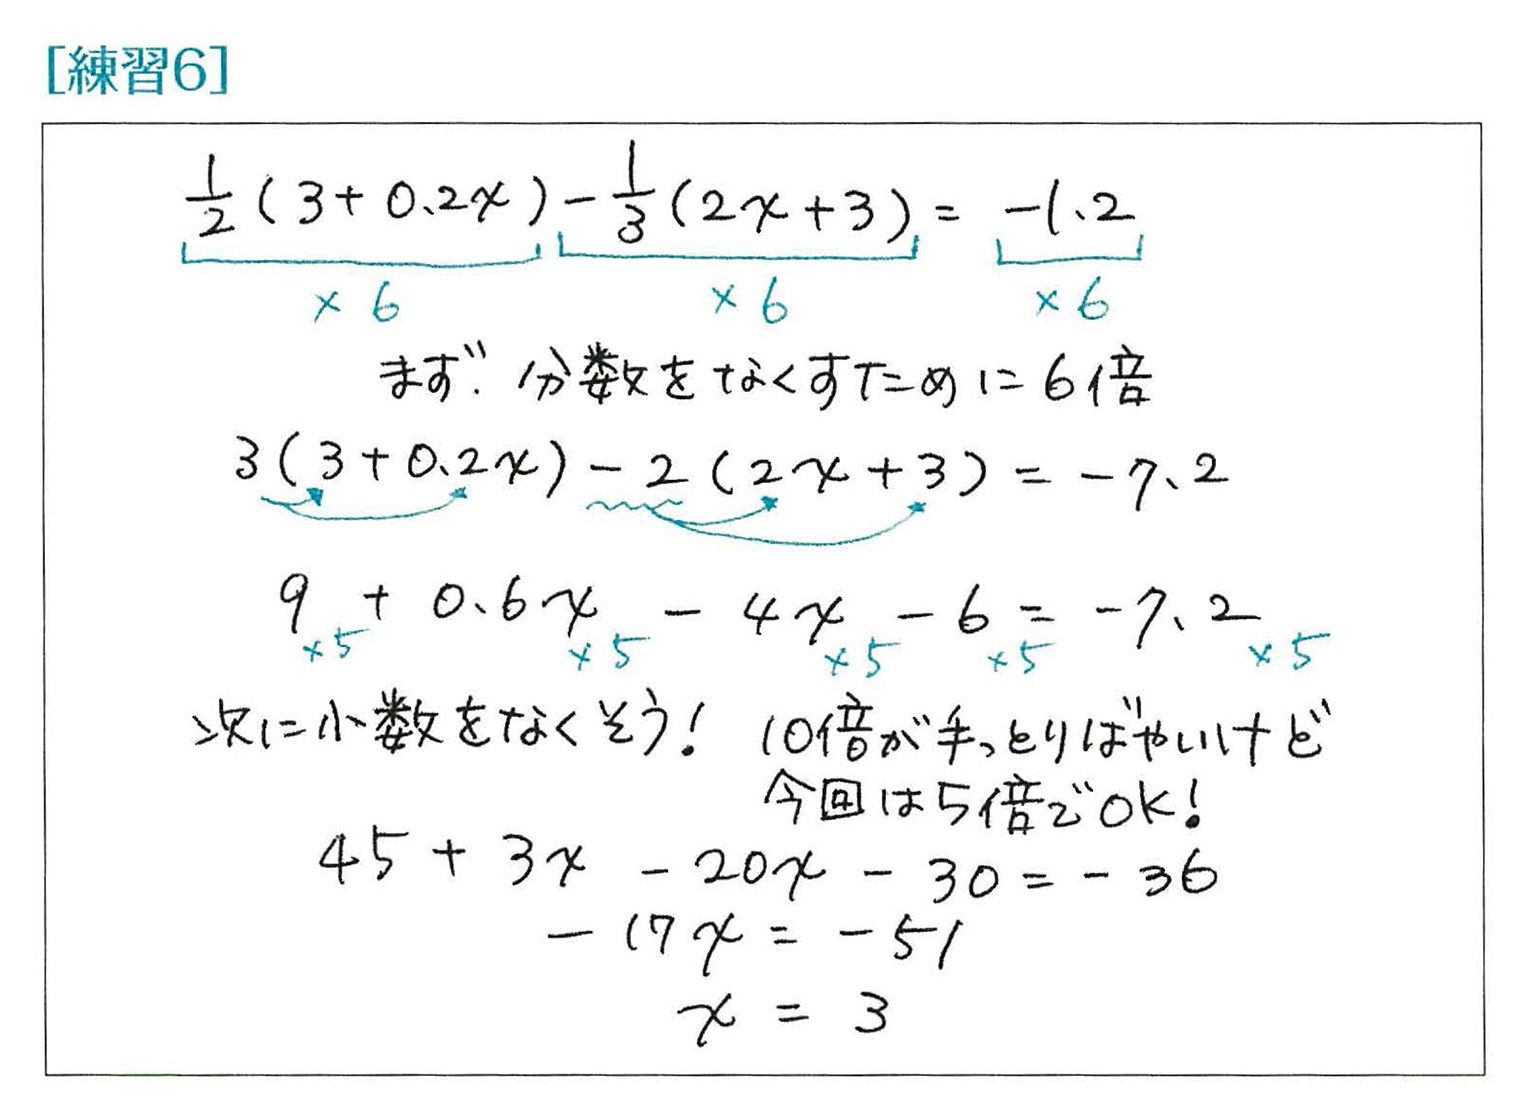 [練習6]
1/2(3+0.2x)-1/3(2x+3)= -1.2
×6 ×6 ×6
まず、分数をなくすために6倍
3(3+0.2x)-2(2x+3)=-7.2
9+0.6x-4x-6=-7.2
×5 ×5 ×5 ×5 ×5
次に小数をなくそう! 10倍が手っとりばやいけど
今回は5倍でOK!
45+3x-20x-30=-36
-17x=-51
x=3